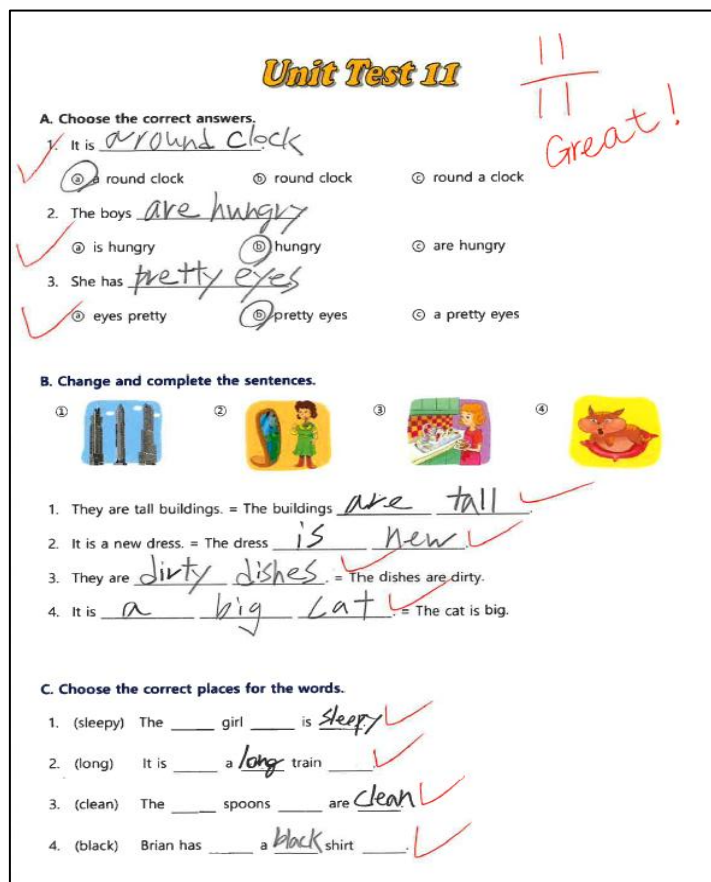 Unit Test 11
11
11
Great!
A. Choose the correct answers.
1. It is around clock
ⓐ a round clock ⓑ round clock ⓒ round a clock
2. The boys are hungry
ⓐ is hungry ⓑ hungry ⓒ are hungry
3. She has pretty eyes
ⓐ eyes pretty ⓑ pretty eyes ⓒ a pretty eyes
B. Change and complete the sentences.
① ② ③ ④
1. They are tall buildings. = The buildings are tall.
2. It is a new dress. = The dress is new.
3. They are dirty dishes. = The dishes are dirty.
4. It is a big cat. = The cat is big.
C. Choose the correct places for the words.
1. (sleepy) The _____ girl _____ is sleepy.
2. (long) It is _____ a long train _____.
3. (clean) The _____ spoons _____ are clean.
4. (black) Brian has _____ a black shirt _____.